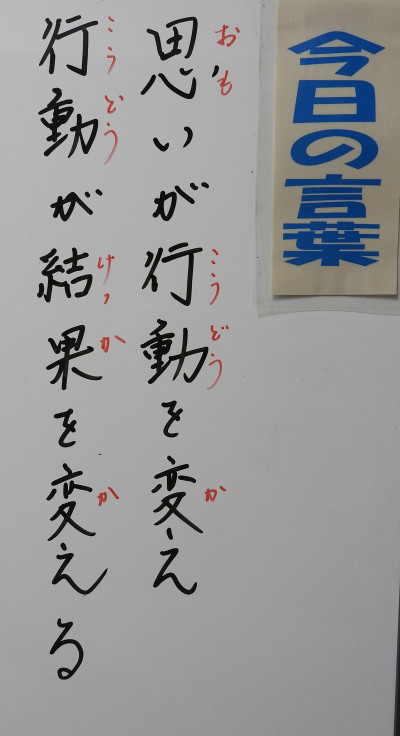 今日の言葉
おも
思いが行動を変え
こうどう
か
行動が結果を変える
こうどう
けっか
か